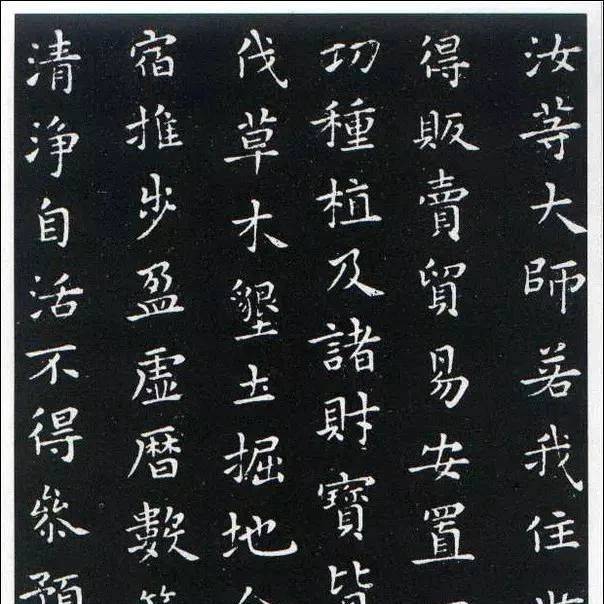 汝等大師若我住世
得販賣貿易安置
切種植及諸財寶皆
伐草木墾土掘地合
宿推步盈虛曆數算
清淨自活不得參預